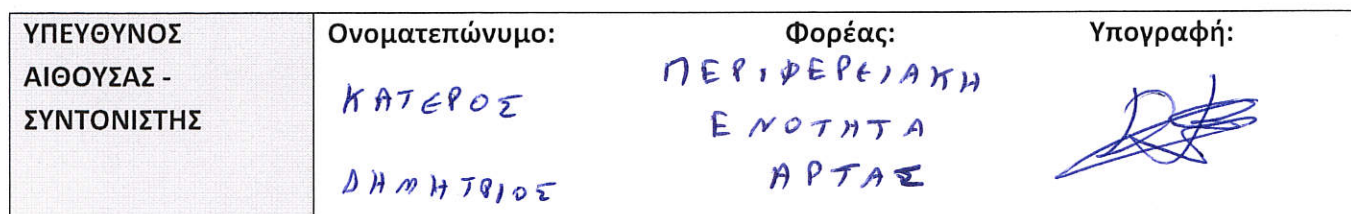 ΥΠΕΥΘΥΝΟΣ
ΑΙΘΟΥΣΑΣ -
ΣΥΝΤΟΝΙΣΤΗΣ
Ονοματεπώνυμο:
ΚΑΤΕΡΟΣ
ΔΗΜΗΤΡΙΟΣ
Φορέας:
ΠΕΡΙΦΕΡΕΙΑΚΗ
ΕΝΟΤΗΤΑ
ΑΡΤΑΣ
Υπογραφή: